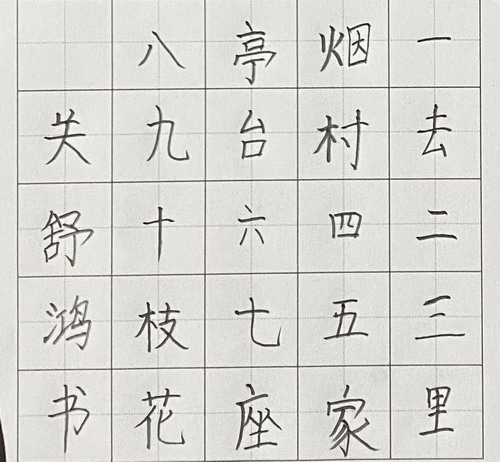 一去二三里
烟村四五家
亭台六七座
八九十枝花
关舒鸿书